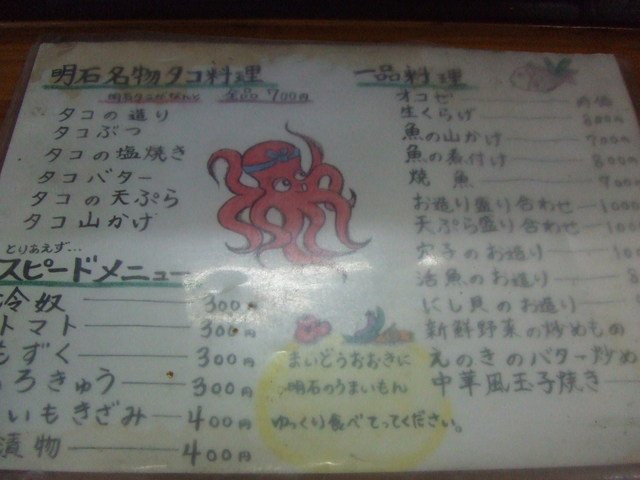 明石名物タコ料理
明石タコがなんと 全品700円
タコの造り
タコぶつ
タコの塩焼き
タコバター
タコの天ぷら
タコ山かけ
とりあえず…
スピードメニュー
冷奴 300円
トマト 300円
もずく 300円
もろきゅう 300円
いもきざみ 400円
漬物 400円
一品料理
オコゼ 時価
生くらげ 800円
魚の山かけ 700円
魚の煮付け 800円
焼魚 700
お造り盛り合わせ 1000
天ぷら盛り合わせ 1000
穴子のお造り
活魚のお造り
にし貝のお造り
新鮮野菜の炒めもの
えのきのバター炒め
中華風玉子焼き
まいどうおおきに
明石のうまいもん
ゆっくり食べてってください。